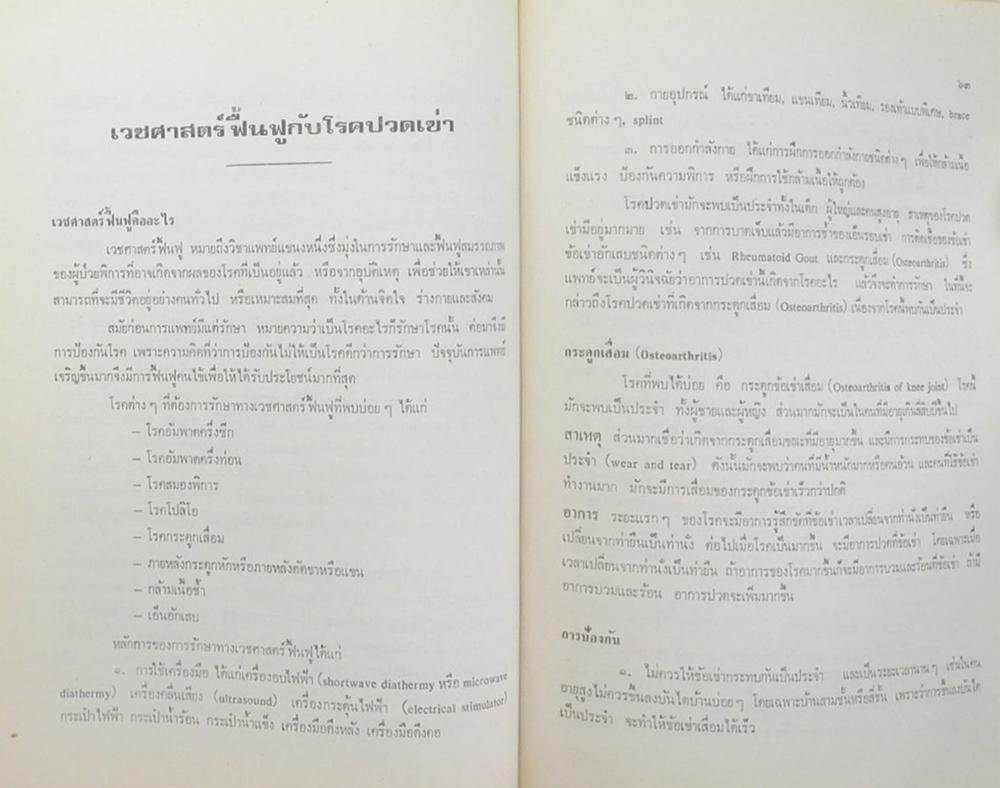 เวชศาสตร์ฟื้นฟูกับโรคปวดเข่า
เวชศาสตร์ฟื้นฟูคืออะไร
เวชศาสตร์ฟื้นฟู หมายถึงวิชาแพทย์แขนงหนึ่งซึ่งมุ่งในการรักษาและฟื้นฟูสมรรถภาพ
ของผู้ป่วยพิการที่อาจเกิดจากผลของโรคที่เป็นอยู่แล้ว หรือจากอุบัติเหตุ เพื่อช่วยให้เขาเหล่านั้น
สามารถที่จะมีชีวิตอยู่อย่างคนทั่วไป หรือเหมาะสมที่สุด ทั้งในด้านจิตใจ ร่างกายและสังคม
สมัยก่อนการแพทย์มีแต่รักษา หมายความว่าเป็นโรคอะไรก็รักษาโรคนั้น ต่อมาจึงมี
การป้องกันโรค เพราะความคิดที่ว่าการป้องกันไม่ให้เป็นโรคดีกว่าการรักษา ปัจจุบันการแพทย์
เจริญขึ้นมากจึงมีการฟื้นฟูคนไข้เพื่อให้ได้รับประโยชน์มากที่สุด
โรคต่าง ๆ ที่ต้องการรักษาทางเวชศาสตร์ฟื้นฟูที่พบบ่อย ๆ ได้แก่
– โรคอัมพาตครึ่งซีก
– โรคอัมพาตครึ่งท่อน
– โรคสมองพิการ
– โรคโปลิโอ
– โรคกระดูกเสื่อม
– ภายหลังกระดูกหักหรือภายหลังตัดขาหรือแขน
– กล้ามเนื้อช้ำ
– เอ็นอักเสบ
หลักการของการรักษาทางเวชศาสตร์ฟื้นฟูได้แก่
๑. การใช้เครื่องมือ ได้แก่เครื่องอบไฟฟ้า (shortwave diathermy หรือ microwave
diathermy) เครื่องคลื่นเสียง (ultrasound) เครื่องกระตุ้นไฟฟ้า (electrical stimulator)
กระเป๋าไฟฟ้า กระเป๋าน้ำร้อน กระเป๋าน้ำแข็ง เครื่องมือดึงหลัง เครื่องมือดึงคอ
๖๓
๒. กายอุปกรณ์ ได้แก่ขาเทียม, แขนเทียม, นิ้วเทียม, รองเท้าแบบพิเศษ, brace
ชนิดต่าง ๆ, splint
๓. การออกกำลังกาย ได้แก่การฝึกการออกกำลังกายชนิดต่าง ๆ เพื่อให้กล้ามเนื้อ
แข็งแรง ป้องกันความพิการ หรือฝึกการใช้กล้ามเนื้อให้ถูกต้อง
โรคปวดเข่ามักจะพบเป็นประจำทั้งในเด็ก ผู้ใหญ่และคนสูงอายุ สาเหตุของโรคปวด
เข่ามีอยู่มากมาย เช่น จากการบาดเจ็บแล้วมีอาการช้ำของเอ็นรอบเข่า การติดเชื้อของข้อเข่า
ข้อเข่าอักเสบชนิดต่าง ๆ เช่น Rheumatoid Gout และกระดูกเสื่อม (Osteoarthritis) ซึ่ง
แพทย์จะเป็นผู้วินิจฉัยว่าอาการปวดเข่านี้เกิดจากโรคอะไร แล้วจึงจะทำการรักษา ในที่นี้จะ
กล่าวถึงโรคปวดเข่าที่เกิดจากกระดูกเสื่อม (Osteoarthritis) เนื่องจากโรคนี้พบกันเป็นประจำ
กระดูกเสื่อม (Osteoarthritis)
โรคที่พบได้บ่อย คือ กระดูกข้อเข่าเสื่อม (Osteoarthritis of knee joint) โรคนี้
มักจะพบเป็นประจำ ทั้งผู้ชายและผู้หญิง ส่วนมากมักจะเป็นในคนที่มีอายุเกินสี่สิบปีขึ้นไป
สาเหตุ ส่วนมากเชื่อว่าเกิดจากกระดูกเสื่อมขณะที่มีอายุมากขึ้น และมีการกระทบของข้อเข่าเป็น
ประจำ (wear and tear) ดังนั้นมักจะพบว่าคนที่มีน้ำหนักมากหรือคนอ้วน และคนที่ใช้ข้อเข่า
ทำงานมาก มักจะมีการเสื่อมของกระดูกข้อเข่าเร็วกว่าปกติ
อาการ ระยะแรก ๆ ของโรคจะมีอาการรู้สึกขัดที่ข้อเข่าเวลาเปลี่ยนจากท่านั่งเป็นท่ายืน หรือ
เปลี่ยนจากท่ายืนเป็นท่านั่ง ต่อไปเมื่อโรคเป็นมากขึ้น จะมีอาการปวดที่ข้อเข่า โดยเฉพาะเมื่อ
เวลาเปลี่ยนจากท่านั่งเป็นท่ายืน ถ้าอาการของโรคมากขึ้นก็จะมีอาการบวมและร้อนที่ข้อเข่า ถ้ามี
อาการบวมและร้อน อาการปวดจะเพิ่มมากขึ้น
การป้องกัน
๑. ไม่ควรให้ข้อเข่ากระทบกันเป็นประจำ และเป็นระยะเวลานาน ๆ เช่นในคน
อายุสูงไม่ควรขึ้นลงบันไดบ้านบ่อย ๆ โดยเฉพาะบ้านสามชั้นหรือสี่ชั้น เพราะว่าการขึ้นลงบันได
เป็นประจำ จะทำให้ข้อเข่าเสื่อมได้เร็ว